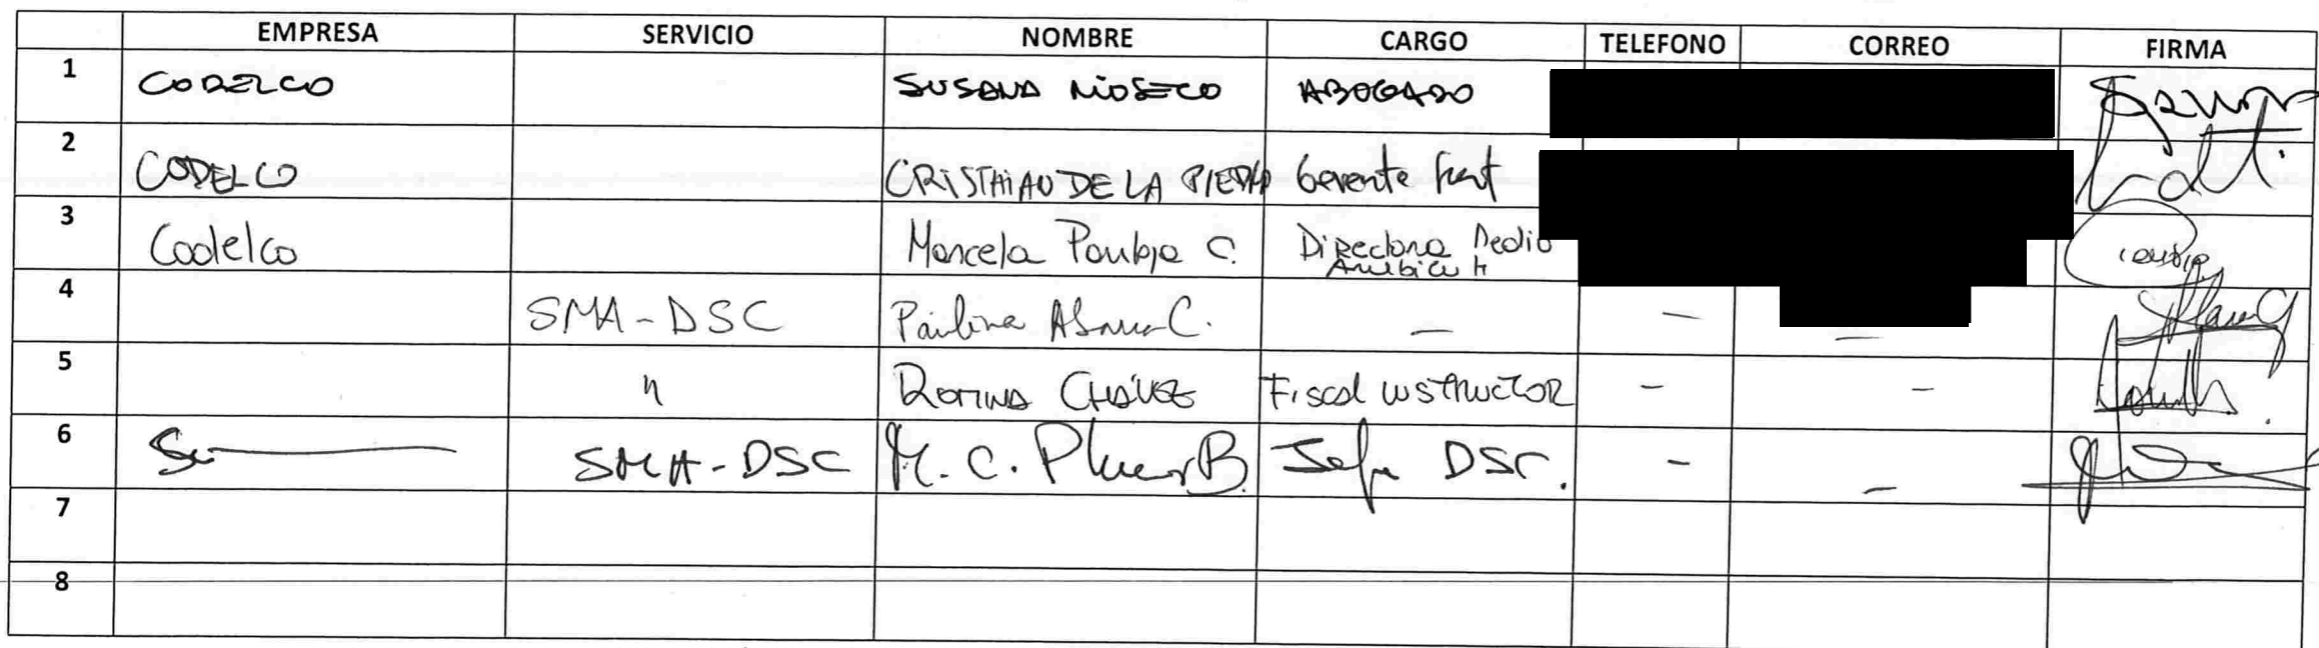 EMPRESA SERVICIO NOMBRE CARGO TELEFONO CORREO FIRMA
1 CODELCO SUSANA RIOSECO ABOGADO
2 CODELCO CRISTHIAN DE LA PIEDRA Gerente
3 Codelco Marcela Pantoja C. Directora Medio
Ambiente
4 SMA-DSC Paulina Abarca C. - - -
5 " ROMINA CHÁVEZ Fiscal INSTRUCTOR - -
6 SMA-DSC M. C. Plumer B. Jefa DSC. - -
7
8